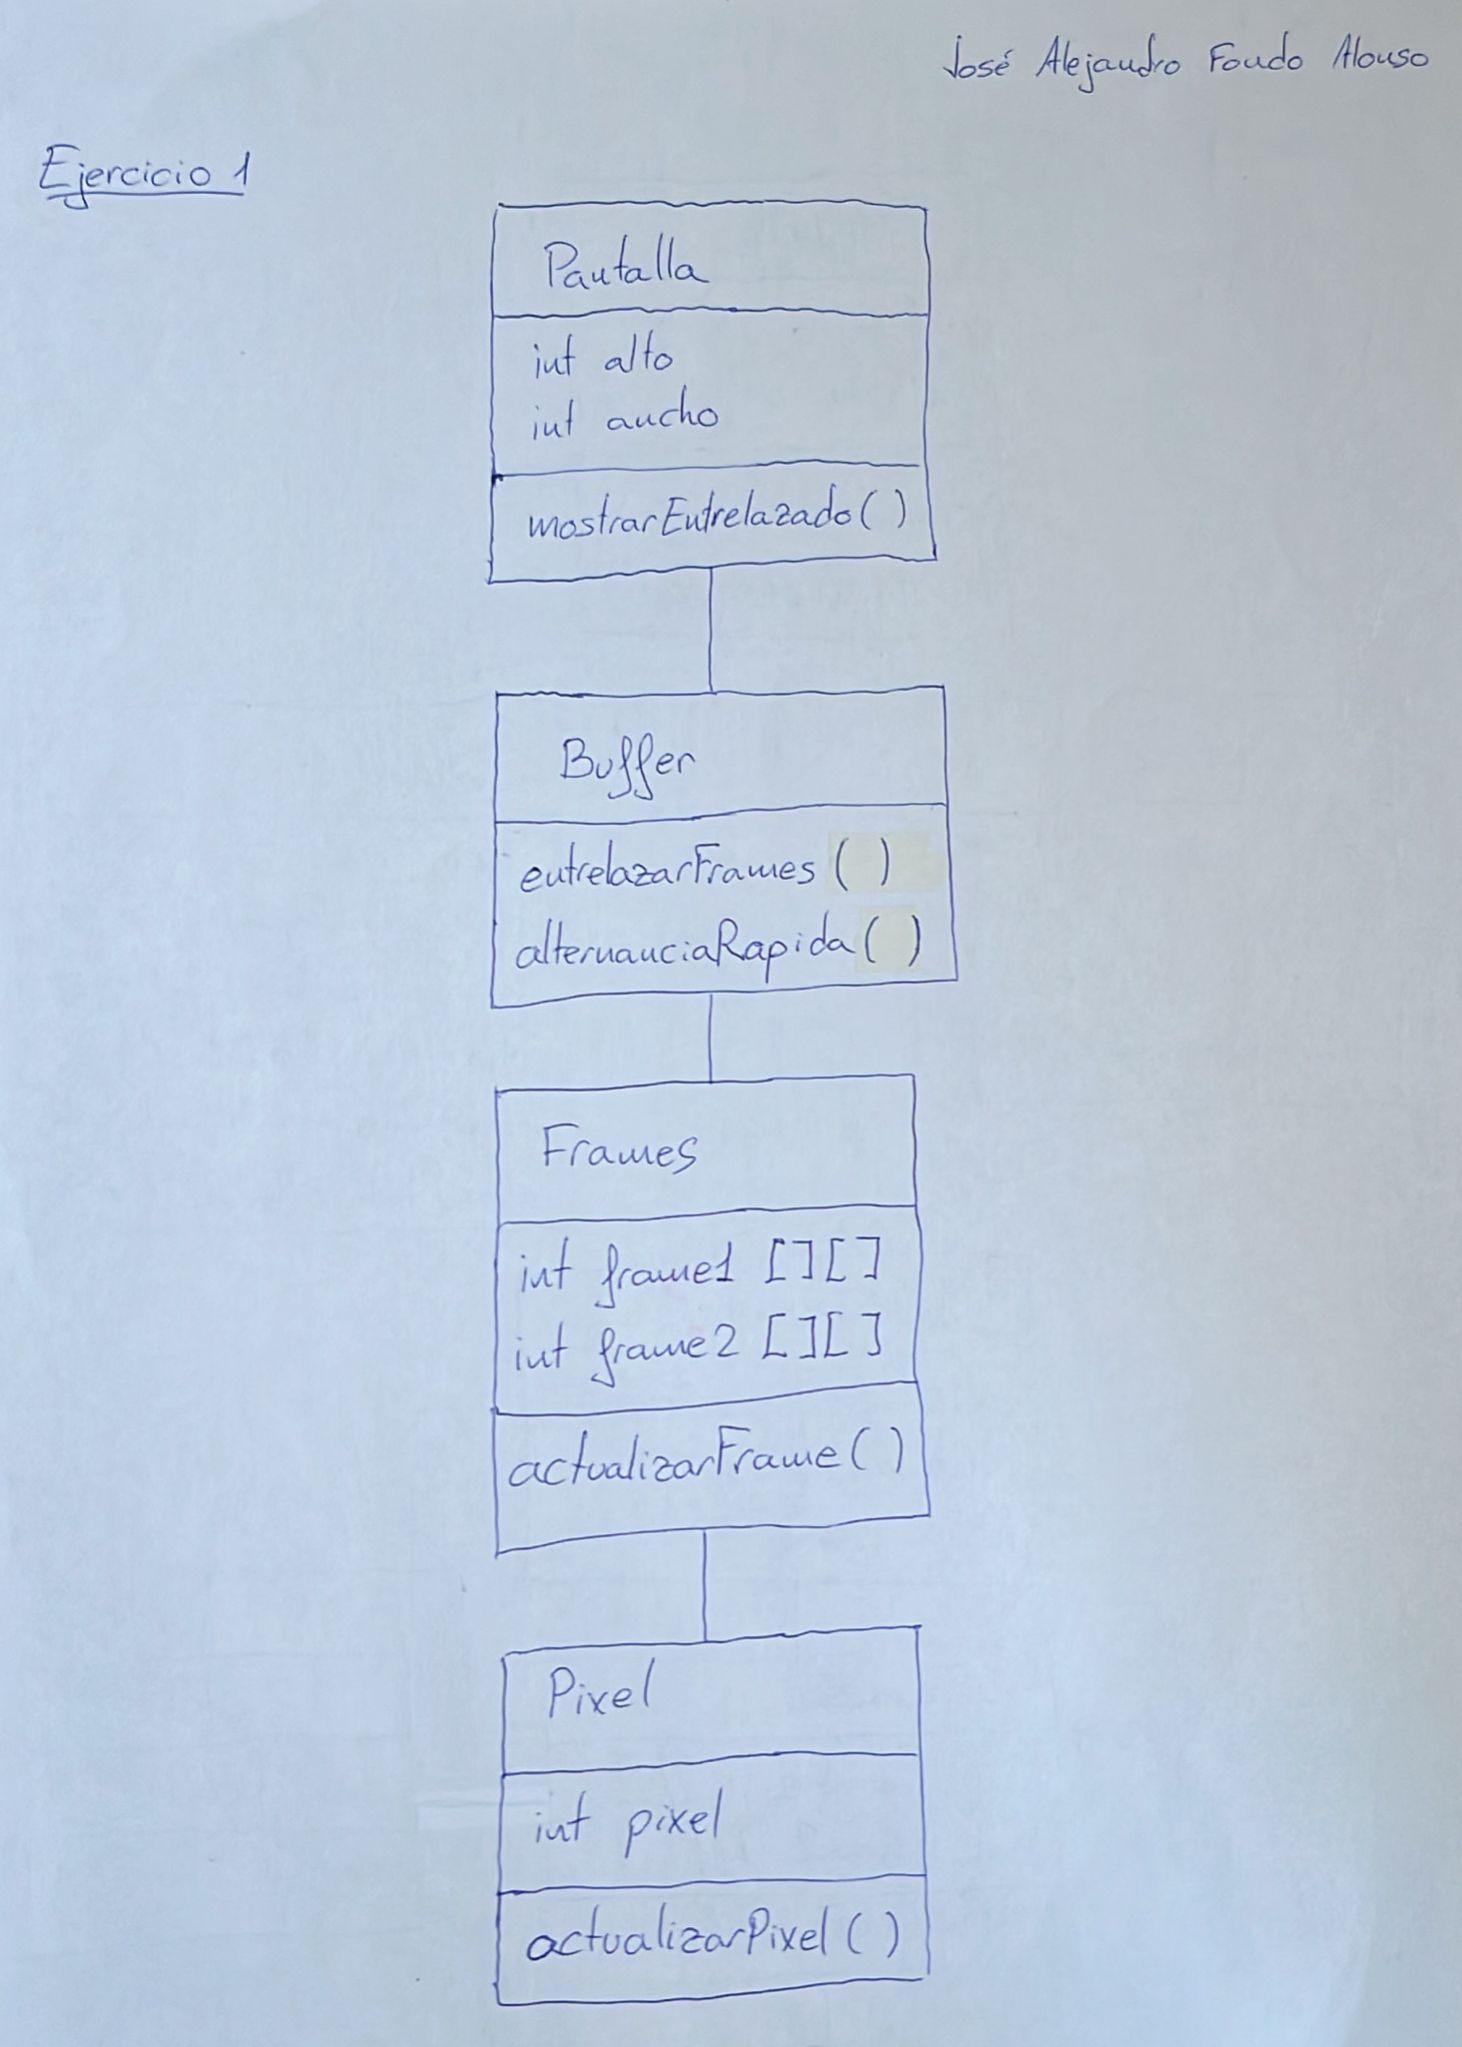 José Alejandro Fondo Alonso
Ejercicio 1
Pantalla
int alto
int ancho
mostrarEntrelazado()
Buffer
entrelazarFrames()
alternanciaRapida()
Frames
int frame1 [][]
int frame2 [][]
actualizarFrame()
Pixel
int pixel
actualizarPixel()